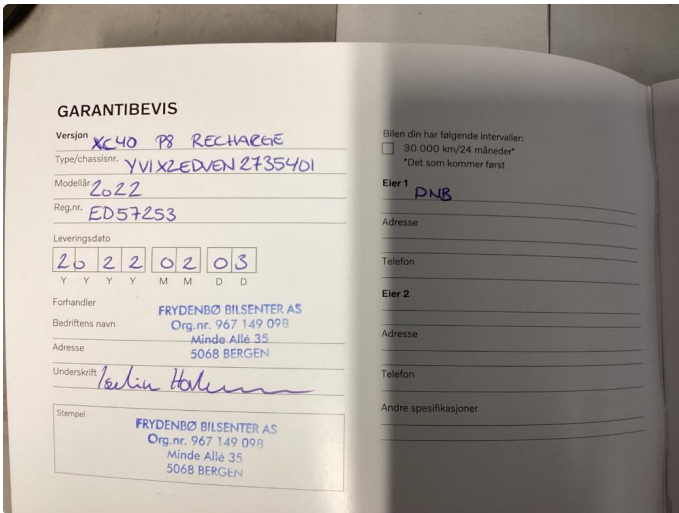 GARANTIBEVIS
Versjon XC40 P8 RECHARGE
Type/chassisnr. YV1XZEDVEN2735401
Modellår 2022
Reg.nr. ED57253
Leveringsdato
2022 02 03
Y Y Y Y M M D D
Forhandler
FRYDENBØ BILSENTER AS
Bedriftens navn
Org.nr. 967 149 098
Minde Allé 35
Adresse
5068 BERGEN
Underskrift
Stempel
FRYDENBØ BILSENTER AS
Org.nr. 967 149 098
Minde Allé 35
5068 BERGEN
Bilen din har følgende intervaller:
30 000 km/24 måneder*
*Det som kommer først
Eier 1 DNB
Adresse
Telefon
Eier 2
Adresse
Telefon
Andre spesifikasjoner